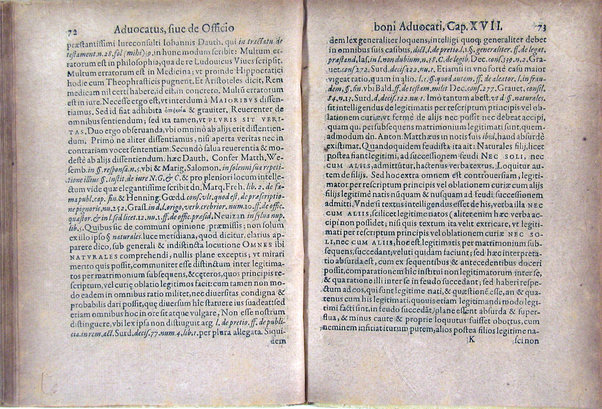 72 Advocatus, siue de Officio
præstantissimi Iureconsulti Iohannis Dauth, qui in tractatu de
testament. n. 28. fol (mihi) 9. in hunc modum scribit: Multum er-
ratorum est in philosophia, qua de re Ludouicus Viues scripsit.
Multum erratorum est in Medicina; vt proinde Hippocratici
hodie cum Theophrasticis pugnent. Et Aristoteles dicit, Rem
medicam nil certi habere, id est in concreto. Multi errorum est
in iure. Necesse ergo est, vt interdum à MAIORIBVS dissen-
tiamus. Sed id fiat adhibita & grauiter, Reuerenter de
omnibus sentiendum; sed ita tamen, vt PLVRIS SIT VERI-
TAS, Duo ergo obseruanda, vbi omninò ab alijs erit dissentien-
dum. Primo ne aliter dissentiamus, nisi aperta veritas nec in
contrariam vocet sententiam. Secundò salua reuerentia & mo-
destè ab alijs dissentiendum. hæc Dauth, Confer Matth, We-
semb. in ff. responsa n. 5. vbi & Matig, Salomon, in solenni sua repeti-
tione illius §. instit. de iure N.G. & C. & pro pleniori loco intelle-
ctum vide quæ elegantissime scribit dn. Marq. Freh. lib. 2. de fa-
ma publ. cap. fin & Henning. Gœdd. consil. vbi quod est, de præscriptio-
ne pignoris, nu. 252. Grass. in d. l. æerb. crebrior, num. 20 ff. de offic.
quæstor. & in l. sed licet 12. nu. 1. ff. de offic. præsid. Neuizan in silua nup.
lib. 1. Quibus sic de communi opinione præmissis; non solum
ex illo ipso § naturales. luce meridiana, quod dicitur, clarius ap-
parere dico, sub generali & indistincta locutione OMNES ibi
NATVRALES comprehendi, nullis plane exceptis; vt mirari
quis possit, cum inter esset distinctum inter legitima-
tos per matrimonium subsequens, & cæteros, quos principis re-
scriptum, vel curię oblatio legitimos facit: cum tamen non mo-
do eadem in omnibus ratio militet, nec diuersitas condigna &
probabilis dari possit, quæ disiunctiua hæc frustra ius suadeat sed
etiam omnibus hoc in ore sit atque vulgare, Non esse nostrum
distinguere, vbi lex ipsa non distinguit arg. l. de pretio. ff. de publi-
cia in rem act. Surd. decis. 77. num. 4. lib. 1. per plura allegata. Siqui-
dem
boni Aduocati, Cap. XVII. 73
dem lex generaliter loquens, intelligi quoq; generaliter debet
in omnibus suis casibus, dict. l. de pretio. l. 1. §. generaliter. ff. de legat.
præstand. Ias. in l. non dubium. n. 18. C. de legib. Dec. cons. 339. n. 2. Gra-
uet. cons. 272. Surd. decis. 222. nu. 1. Etiamsi in vno forté casu maior
vigeat ratio, quam in alio. l. 1. §. quod autem. ff. de aleator. l. in frau-
dem. §. fin. vbi Bald. ff. de testam. milit Dec. cons. 277. Grauet. consil.
84. n. 15. Surd. decis. 122. nu. 1. Imò tantum abest. vt d §. naturales,
sit intelligendus de legitimatis per rescriptum principis vel ob-
lationem curiæ; vt vt fermé de alijs nec possit nec debeat accipi,
quàm qui per subsequens matrimonium legitimi sunt, quem-
admodum dn. Anton Matthæus in notis suis ibid, haud absurdè
existimat. Quandoquidem feudista ita ait: Naturales filij, licet
postea fiant legitimi, ad successionem feudi NEC SOLI, NE-
CVM ALIIS, admittuntur, hactenus verba textus. Loquitur au-
tem de filiis. Sed hoc extra omnem est controuersiam, legiti-
matum per rescriptum principis vel oblationem curiæ cum alijs
filijs legitimè natis nunquam & nusquam ad feudi successionem
admitti. Vnde textus is intelligendus esset de his, verba illa NE-
CVM ALIIS, si uelut legitima nati (aliter enim hæc verba ac-
cipi non possunt;) nisi quis textum ita velit extricare, vt legiti-
mati per rescriptum principis vel oblationem curiæ nec SO-
LI; nec CVM ALIIS; hoc est legitimatis per matrimonium sub-
sequens, succedant, veluti quidam faciunt; sed hæc interpreta-
tio absurda est, cum ex sequentibus & antecedentibus doceri
possit, comparationem hic institui non legitimatorum inter se,
& quæ ratione illi inter se in feudo succedant, sed haberi respe-
ctum ad eos, qui sunt legitimè nati, & quæstionẽ esse, an & qua-
tenus cum his legitimati, quouis etiam modo fiant tandem legi-
timi facti sint, in feudo succedãt, planè essent absurda & super-
flua, & minus cautè & propriè loquutus fuisset obottus, cum
neminem insistituirum putem, alios postea filios legitime na-
K sci non